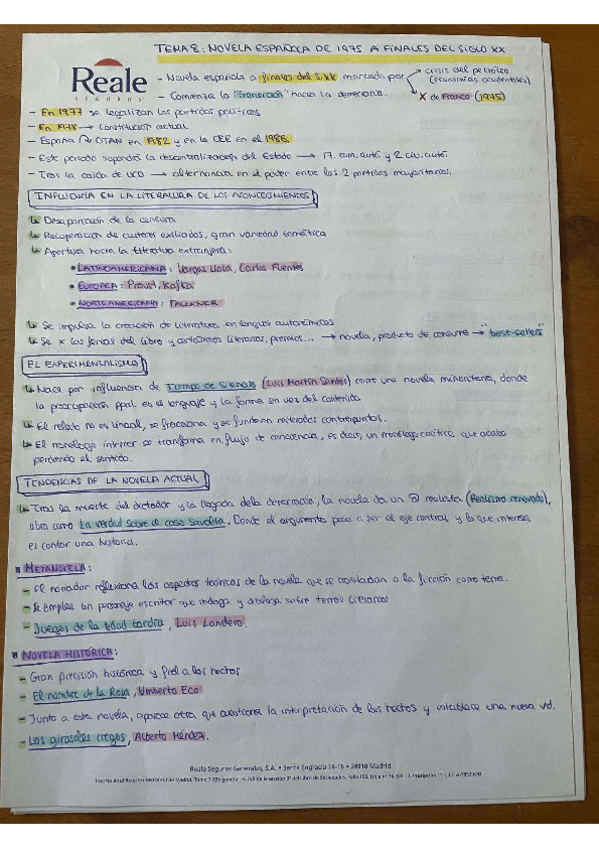 TEMA 8: NOVELA ESPAÑOLA DE 1975 A FINALES DEL SIGLO XX
Reale
SEGUROS
- Novela española a finales del S.XX marcada por
crisis del petróleo
(economías occidentales)
X de Franco (1975)
- Comienza la "transición" hacia la democracia.
- En 1977 se legalizan los partidos políticos
- En 1978 → Constitución actual
- España OTAN en 1982 y en la CEE en el 1986.
- Este periodo supondrá la descentralización del Estado → 17 com. autó. y 2 ciu. autó.
- Tras la caída de UCD → alternancia en el poder entre los 2 partidos mayoritarios.
INFLUENCIA EN LA LITERATURA DE LOS ACONTECIMIENTOS
↳ Desaparición de la censura
↳ Recuperación de autores exiliados, gran variedad temática
↳ Apertura hacia la literatura extranjera:
• LATINOAMERICANA: Vargas Llosa, Carlos Fuentes
• EUROPEA: Proust, Kafka
• NORTEAMERICANA: FAULKNER
↳ Se impulsa la creación de literatura en lenguas autonómicas
↳ Se x las ferias del libro y certámenes literarios, premios... → novela, producto de consumo → "best-sellers"
EL EXPERIMENTALISMO
↳ Nace por influencia de Tiempo de Silencio (Luis Martín Santos) como una novela minoritaria, donde
la preocupación ppal. es el lenguaje y la forma en vez del contenido
↳ El relato no es lineal, se fracciona y se funde en reiterados contrapuntos.
↳ El monólogo interior se transforma en flujo de conciencia, es decir, un monólogo caótico que acaba
perdiendo el sentido.
TENDENCIAS DE LA NOVELA ACTUAL
↳ Tras la muerte del dictador y la llegada de la democracia, la novela da un realista (Realismo renovado),
obra como La verdad sobre el caso Savolta. Donde el argumento pasa a ser el eje central y lo que interesa
es contar una historia.
METANOVELA:
- El narrador reflexiona los aspectos teóricos de la novela que se trasladan a la ficción como tema.
- Se emplea un personaje escritor que indaga y dialoga sobre temas literarios
- Juegos de la edad tardía, Luis Landero.
NOVELA HISTÓRICA:
- Gran precisión histórica y fiel a los hechos
- El nombre de la Rosa, Umberto Eco
- Junto a esta novela, aparece otra que cuestiona la interpretación de los hechos y establece una nueva vd.
- Los girasoles ciegos, Alberto Méndez.
Reale Seguros Generales, S.A. • Santa Engracia 14-16 • 28010 Madrid